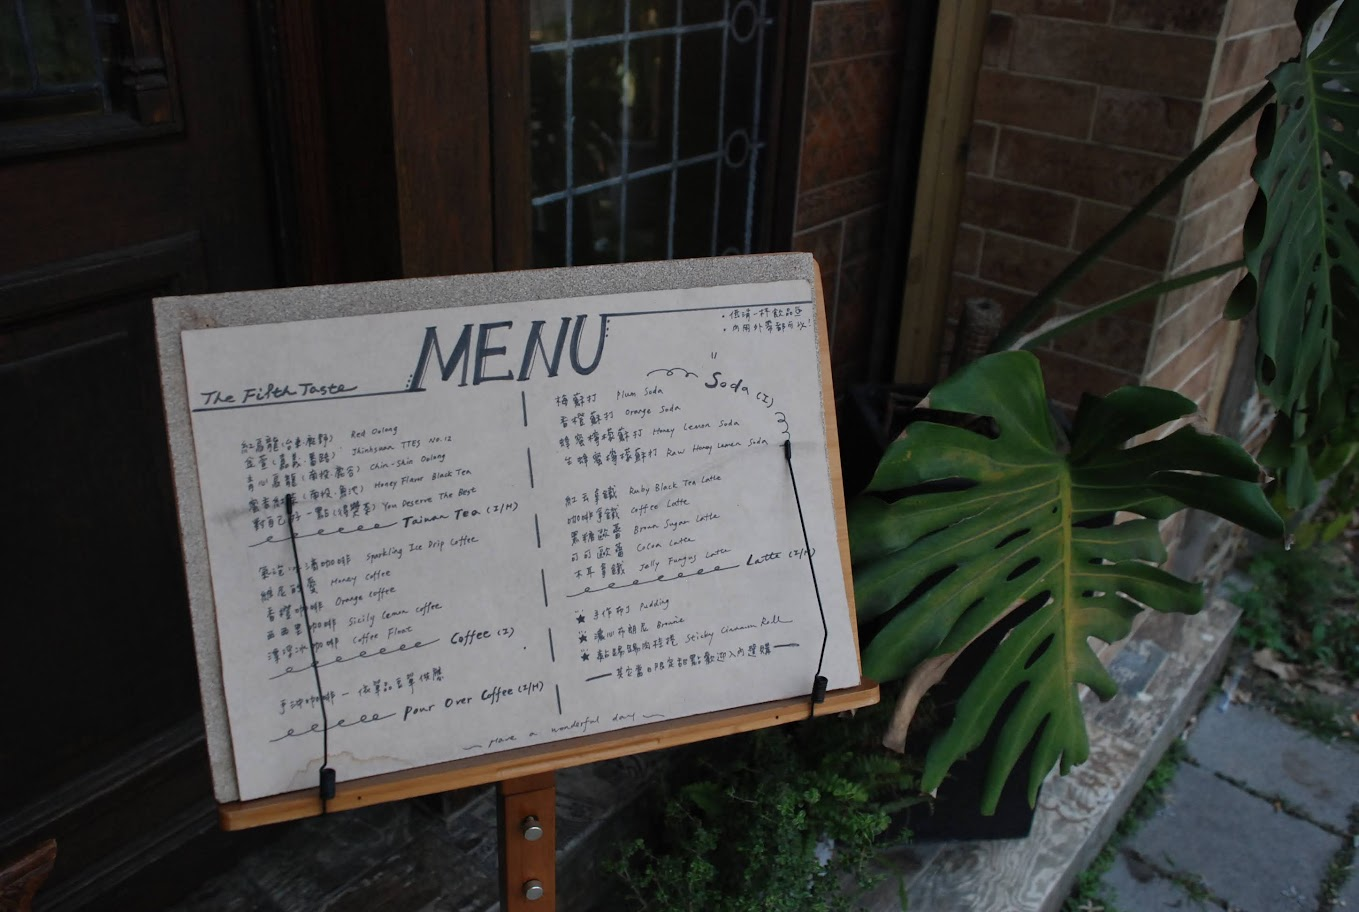 MENU
The Fifth Taste
・低消一杯飲品
・內用外帶都可以!
紅烏龍(台東·鹿野) Red Oolong
金萱(嘉義·番路) Jhinhsuan TTES NO.12
青心烏龍(南投·鹿谷) Chin-Shin Oolong
蜜香紅茶(南投·魚池) Honey Flavor Black Tea
對自己好一點(得獎茶) You Deserve The Best
Taiwan Tea (I/H)
氣泡冰滴咖啡 Sparkling Ice Drip Coffee
維尼的愛 Honey Coffee
香橙咖啡 Orange Coffee
西西里咖啡 Sicily Lemon Coffee
漂浮冰咖啡 Coffee Float
Coffee (I)
手沖咖啡 — 依單品豆單供應
Pour Over Coffee (I/H)
Soda (I)
梅蘇打 Plum Soda
香橙蘇打 Orange Soda
蜂蜜檸檬蘇打 Honey Lemon Soda
生蜂蜜檸檬蘇打 Raw Honey Lemon Soda
紅玉拿鐵 Ruby Black Tea Latte
咖啡拿鐵 Coffee Latte
黑糖歐蕾 Brown Sugar Latte
可可歐蕾 Cocoa Latte
木耳拿鐵 Jelly Fungus Latte
Latte (I/H)
★ 手作布丁 Pudding
★ 濃心布朗尼 Brownie
★ 黏踢踢肉桂捲 Sticky Cinnamon Roll
— 其它當日限定甜點歡迎入內選購 —
~ Have a wonderful day ~